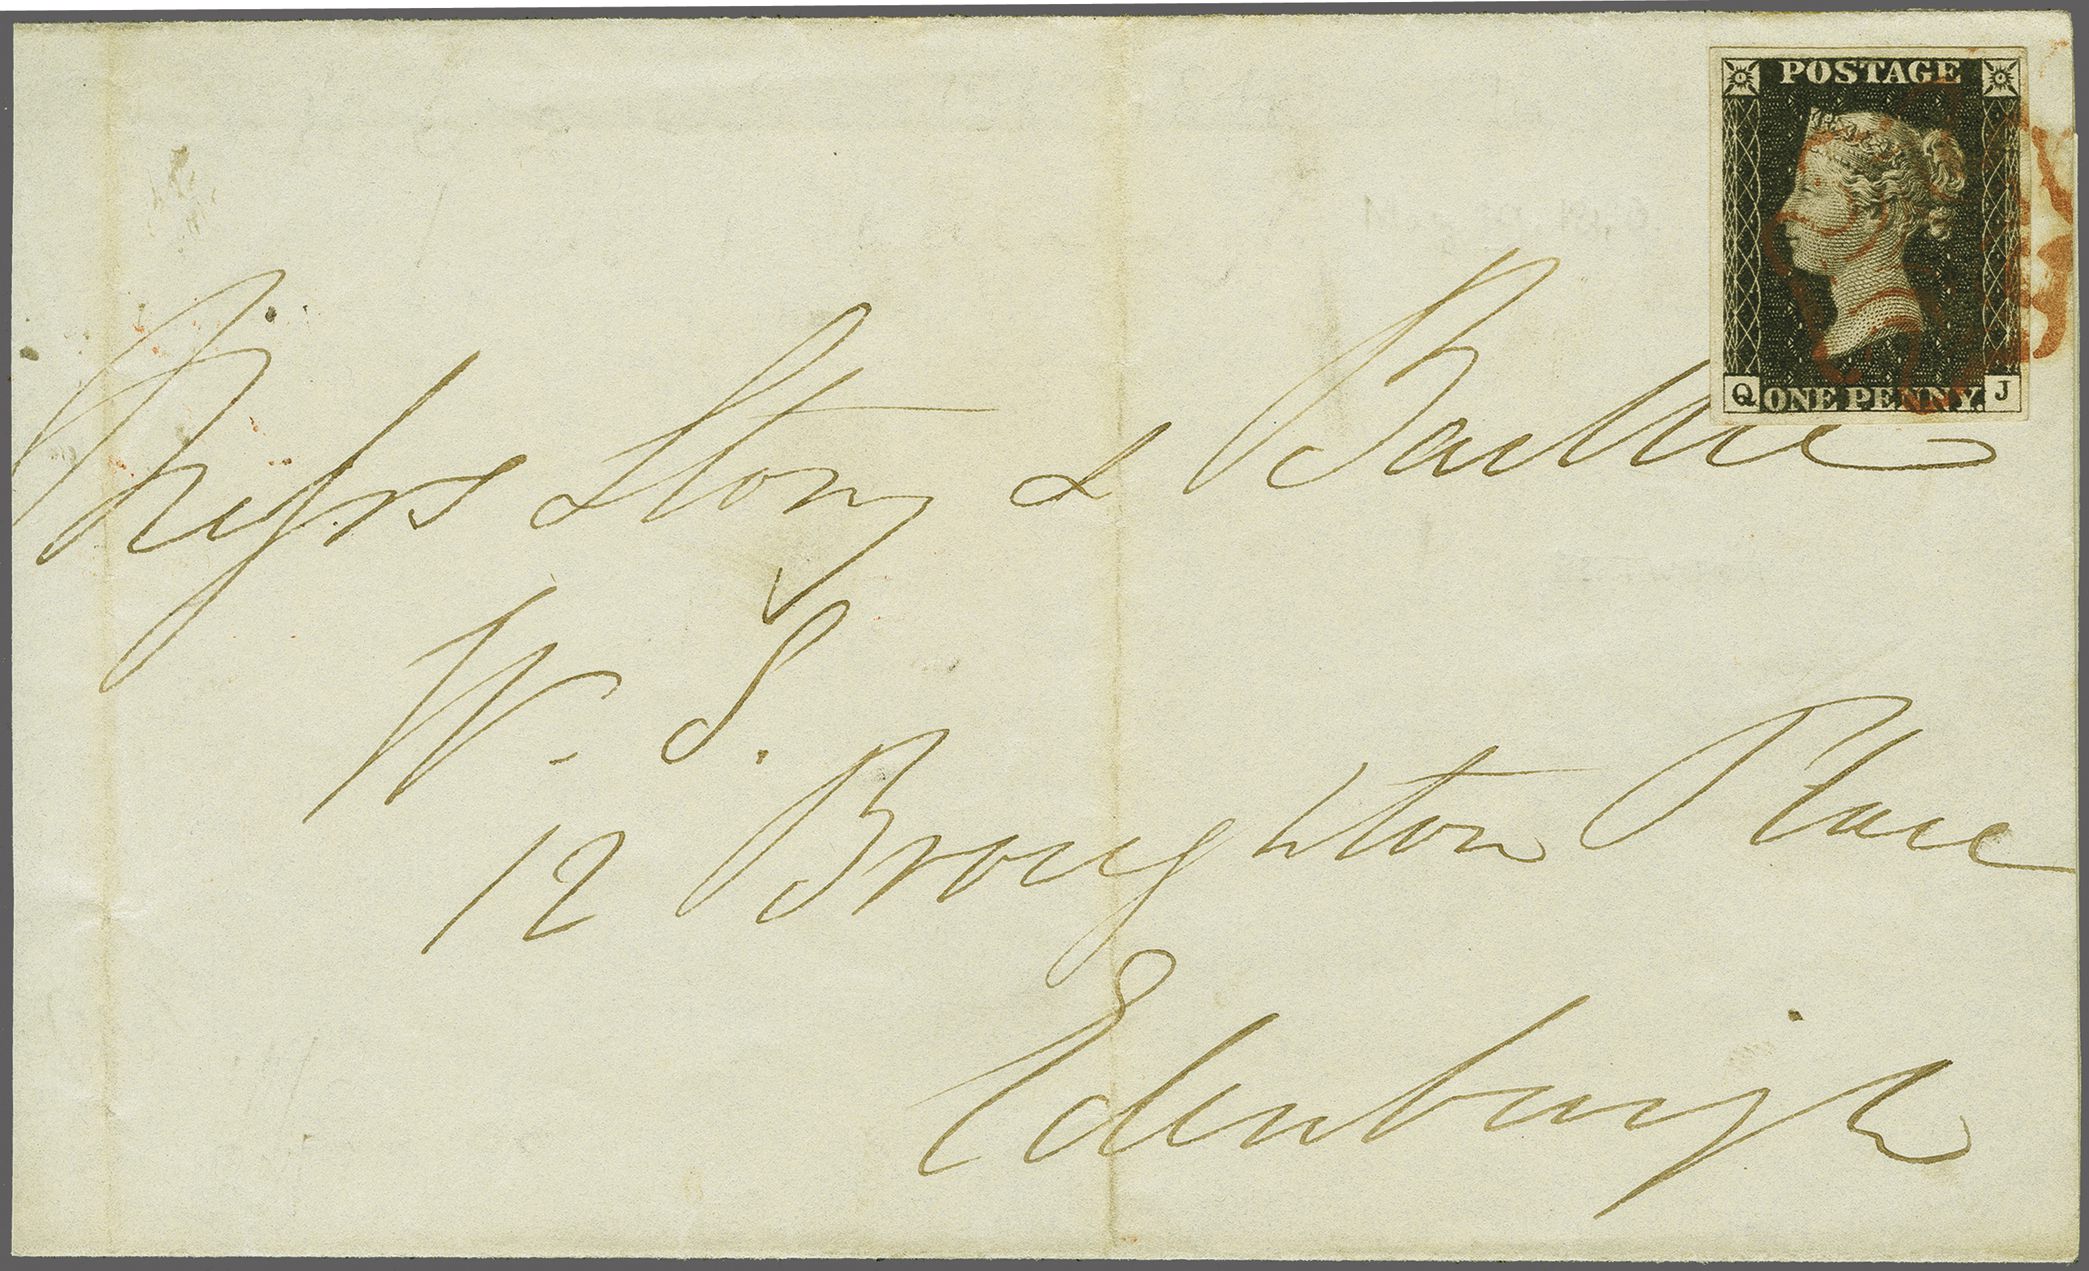 POSTAGE
Q ONE PENNY. J
Messrs Story & Baillie
W. S.
12 Broughton Place
Edinburgh